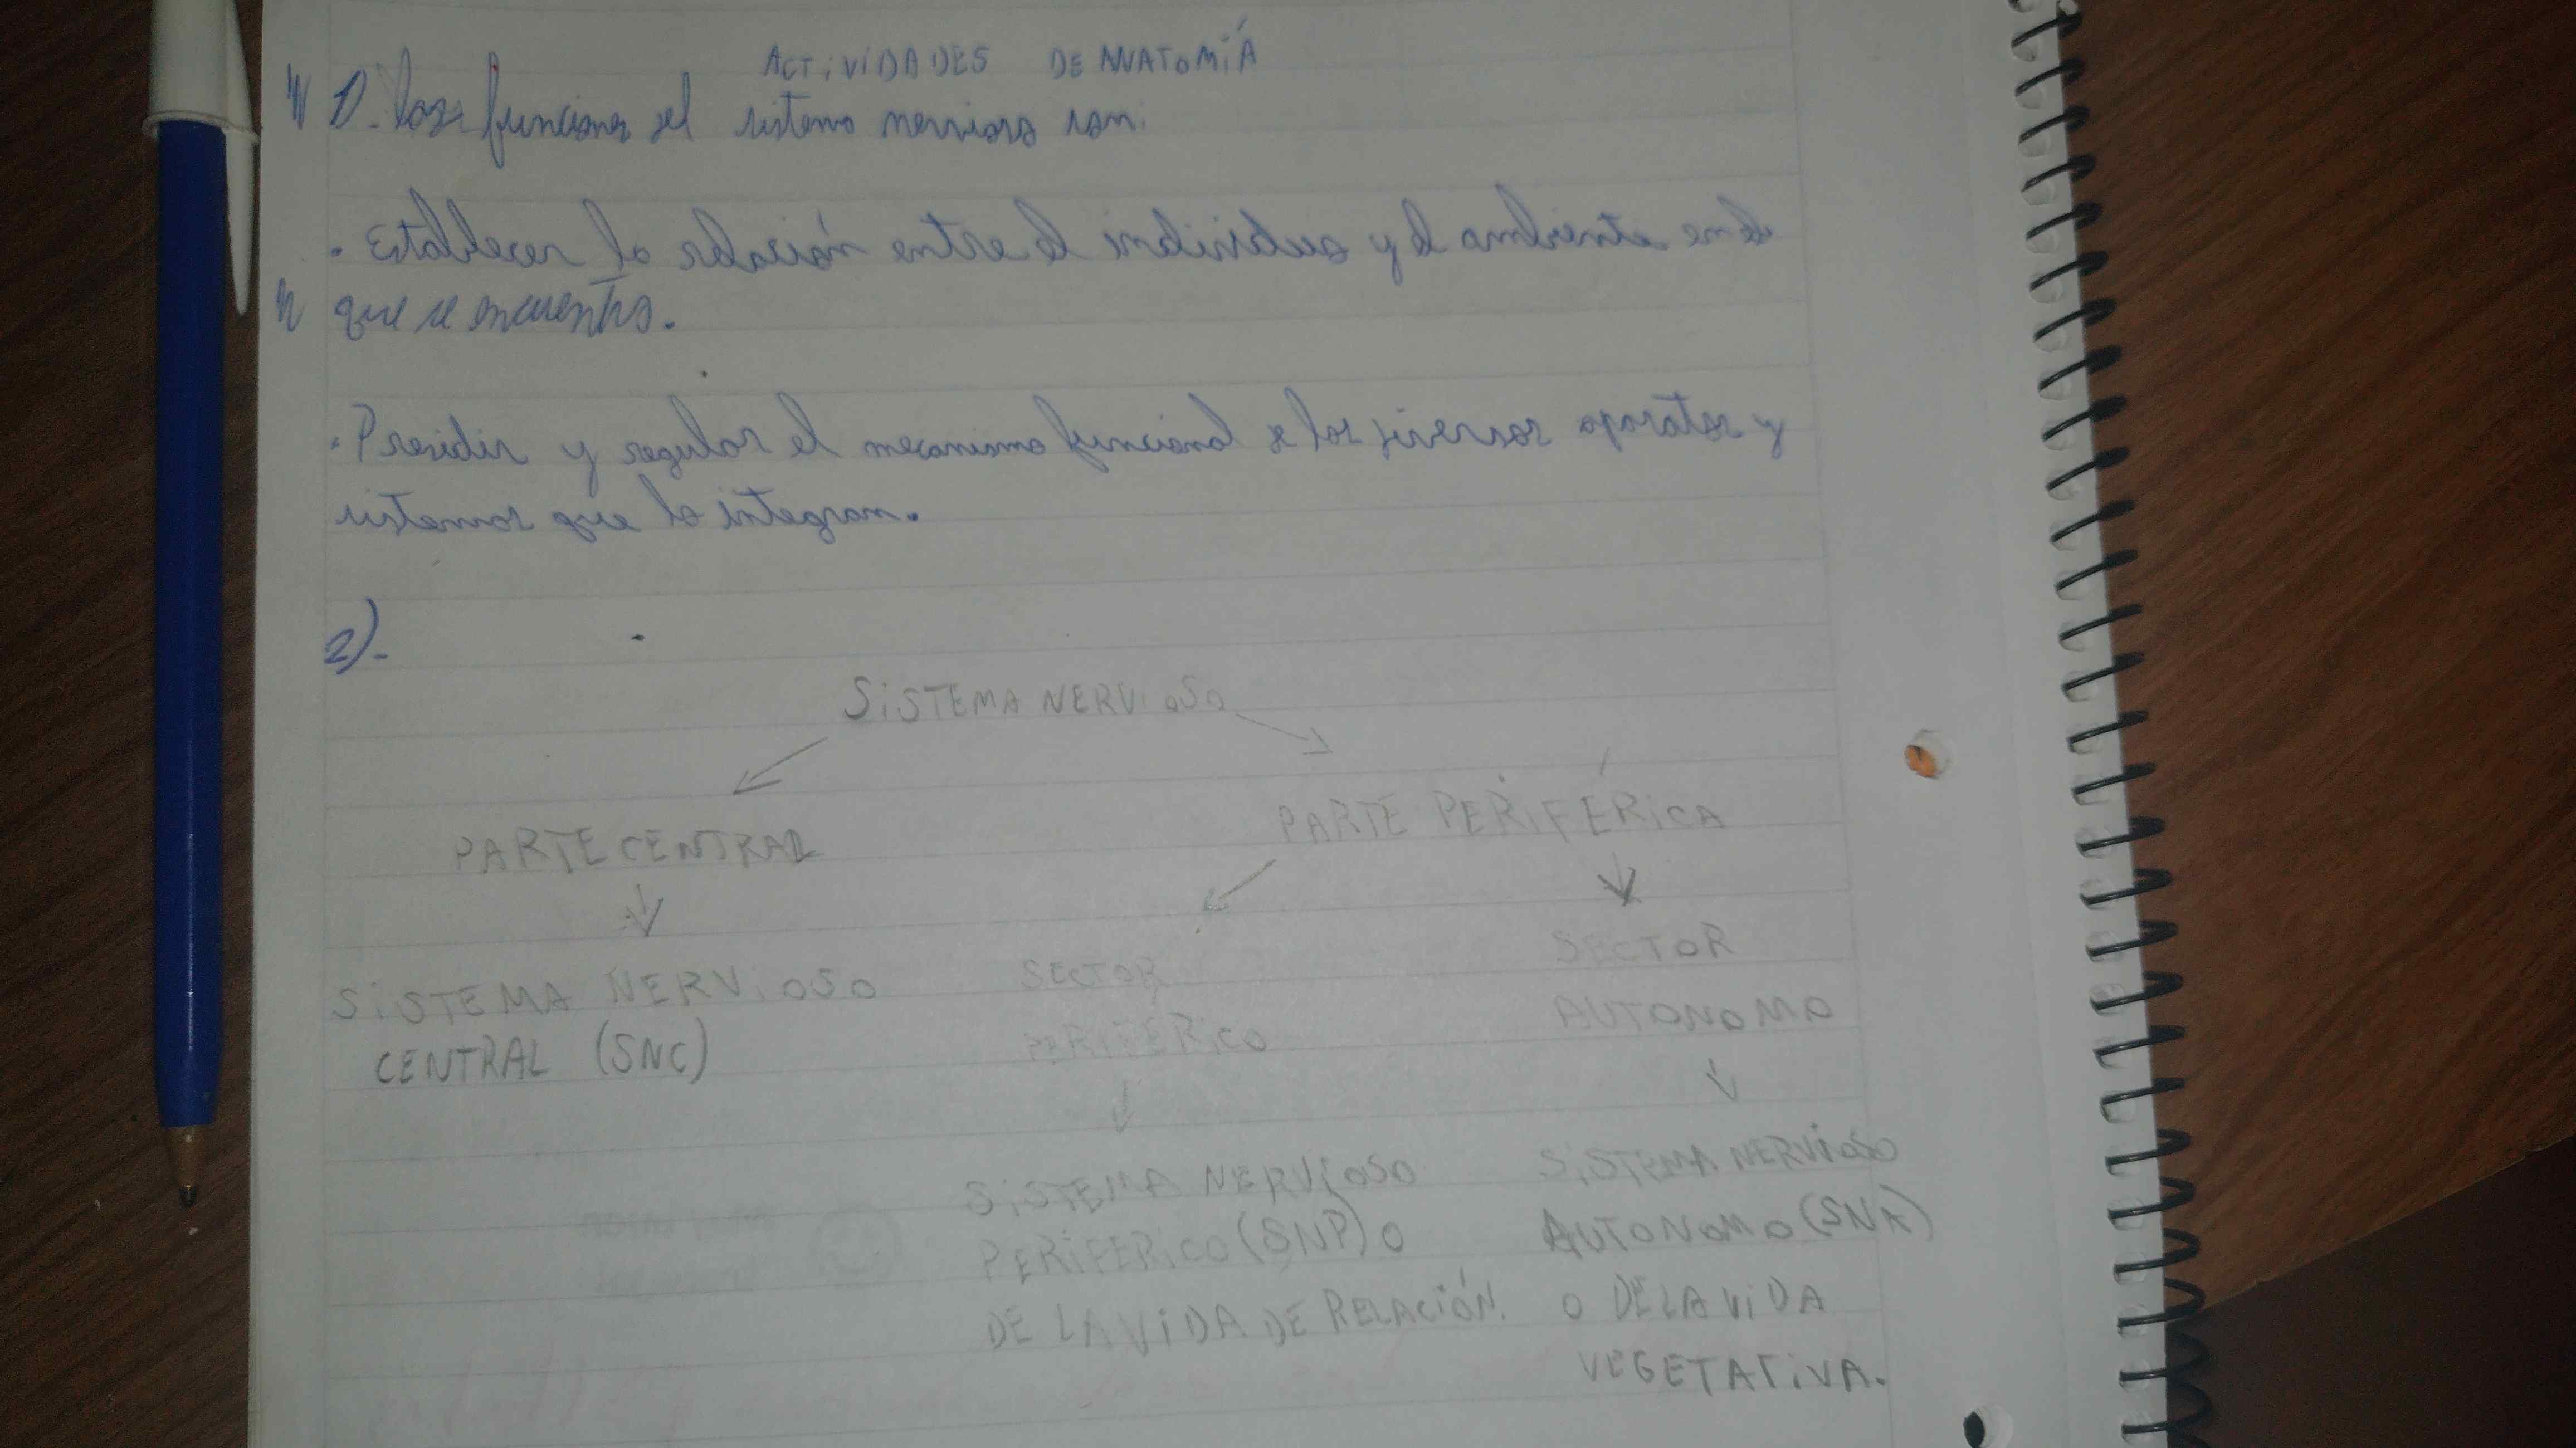 ACTIVIDADES DE ANATOMÍA
1). Las funciones del sistema nervioso son:
. Establecer la relación entre el individuo y el ambiente en el
que se encuentra.
. Presidir y regular el mecanismo funcional de los diversos aparatos y
sistemas que lo integran.
2).
SISTEMA NERVIOSO
PARTE CENTRAL
PARTE PERIFÉRICA
SISTEMA NERVIOSO
CENTRAL (SNC)
SECTOR
PERIFERICO
SECTOR
AUTONOMO
SISTEMA NERVIOSO
PERIFERICO (SNP) O
DE LA VIDA DE RELACIÓN.
SISTEMA NERVIOSO
AUTONOMO (SNA)
O DE LA VIDA
VEGETATIVA.